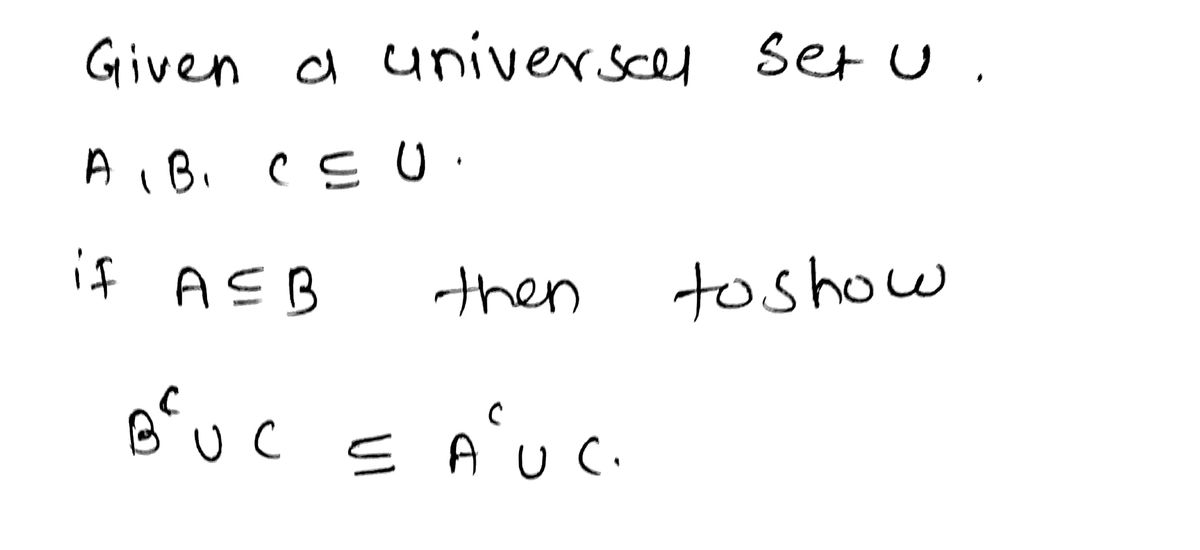 Given a universal set U.
A, B, C ⊆ U.
if A ⊆ B then to show
Bᶜ ∪ C ⊆ Aᶜ ∪ C.